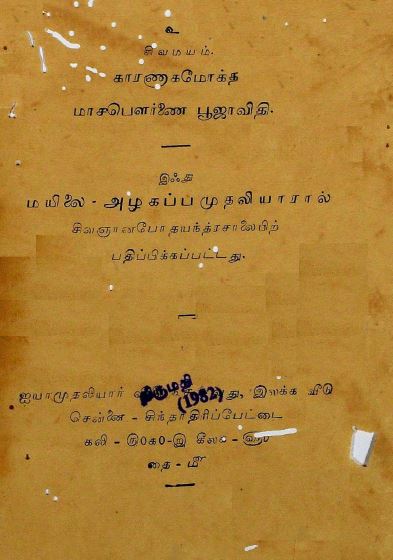 உ
சிவமயம்.
காரணாகமோக்த
மாசபௌர்ணை பூஜாவிதி.
இஃது
மயிலை - அழகப்பமுதலியாரால்
சிவஞானபோதயந்த்ரசாலையிற்
பதிப்பிக்கப்பட்டது.
திருமதி
(1982)
ஐயாமுதலியார் வது, இலக்க வீடு
சென்னை - சிந்தாதிரிப்பேட்டை
கலி - கீலக -
தை - மீ